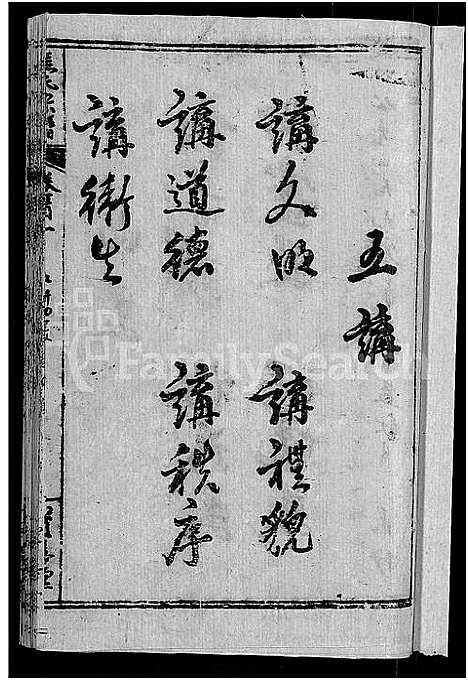 五講
講文明
講禮貌
講道德
講秩序
講衛生
FamilySearch